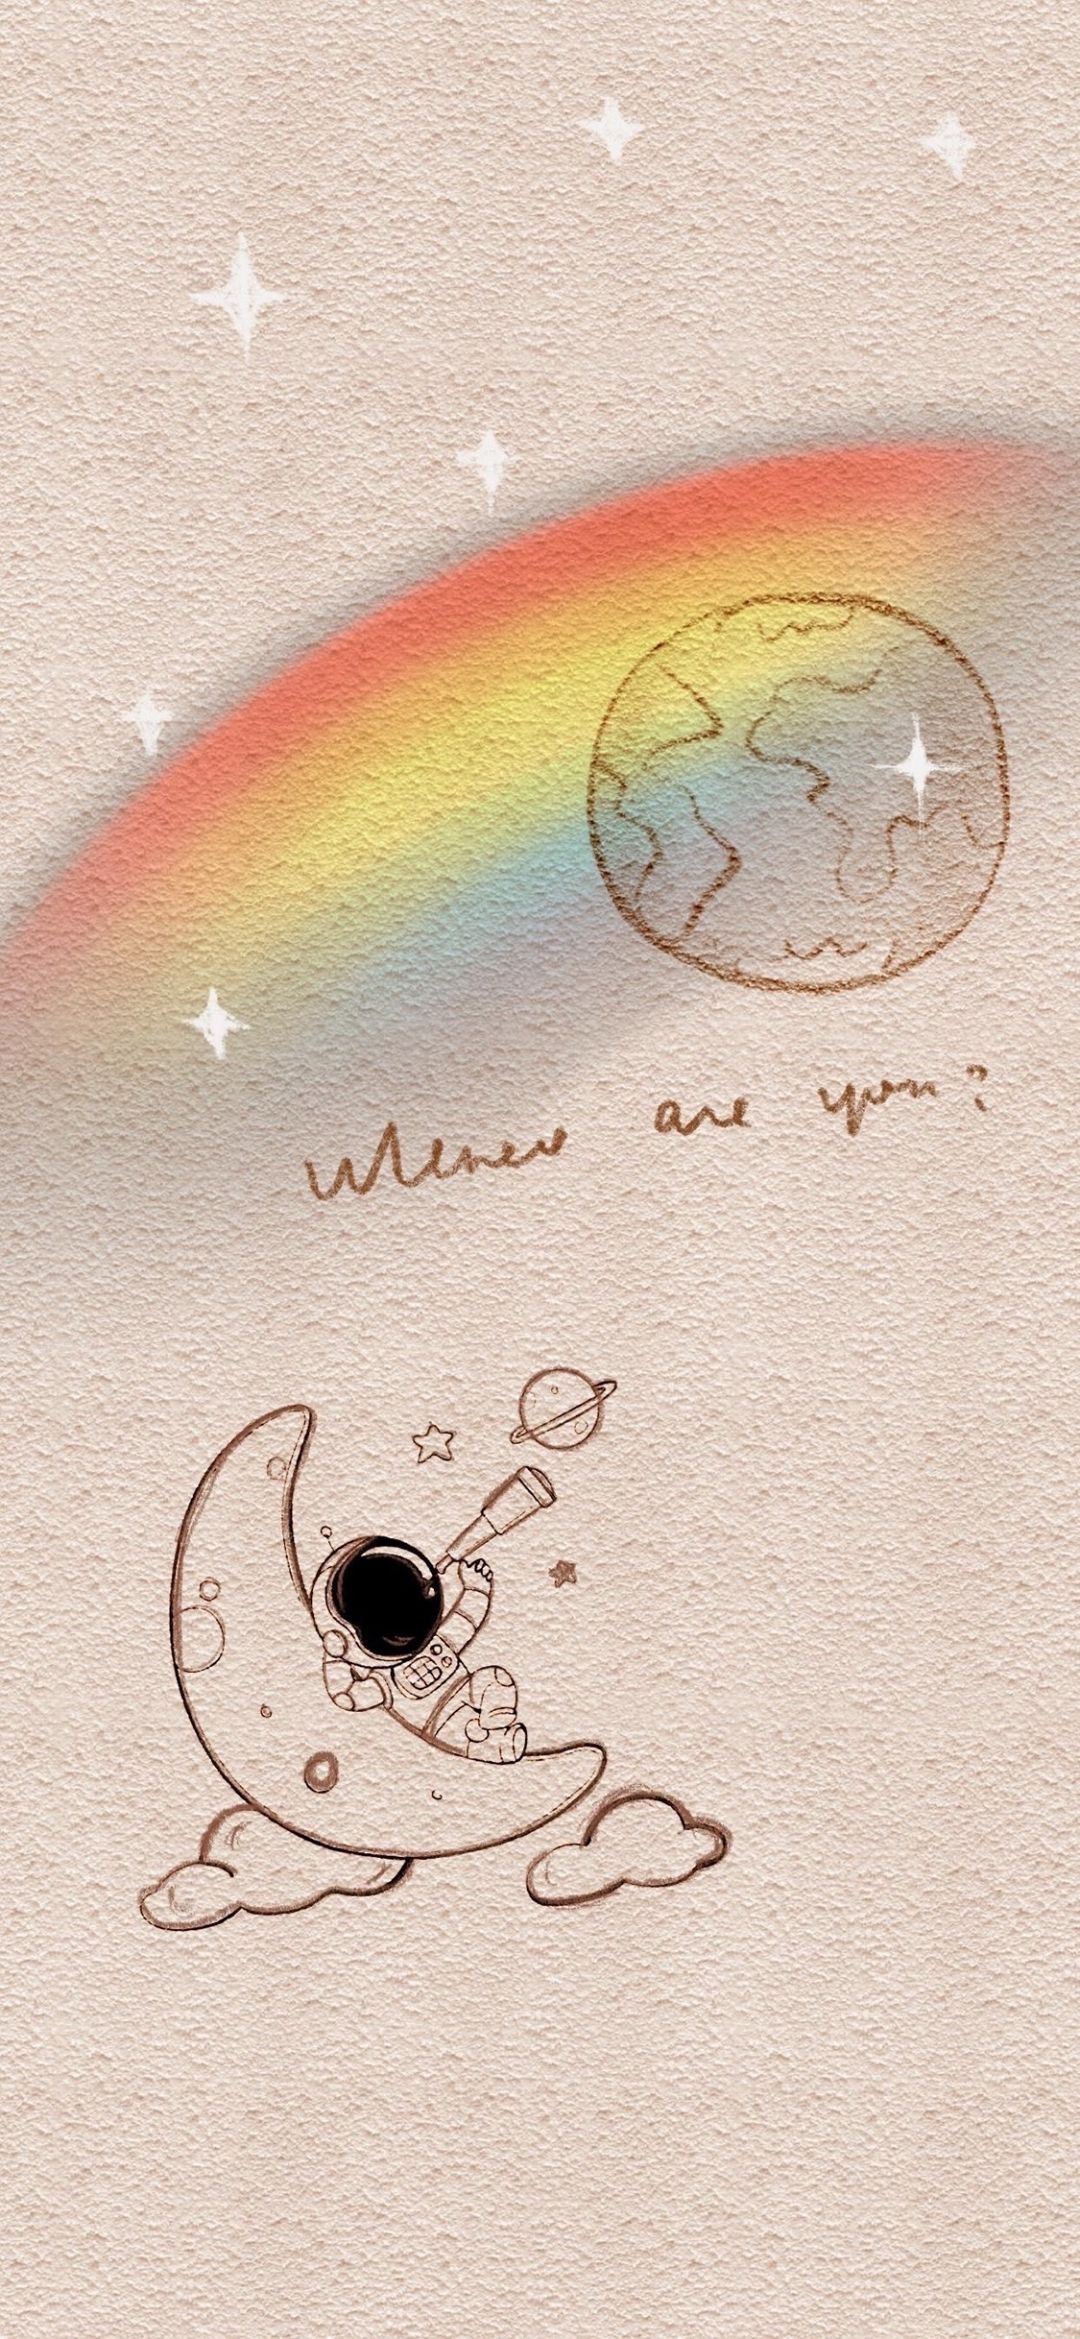 Where are you?